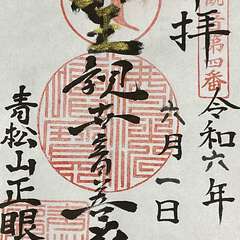 第四番
拝
令和六年
六月一日
聖観世音菩薩
青松山正眼